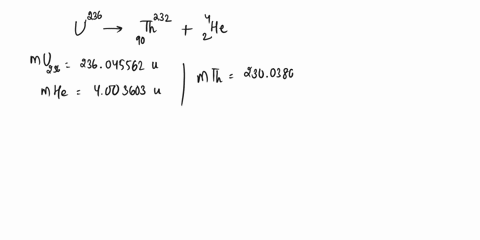 U²³⁶ → ₉₀Th²³² + ⁴₂He
mU₂₃₆ = 236.045562 u
mHe = 4.003603 u
mTh = 230.0380